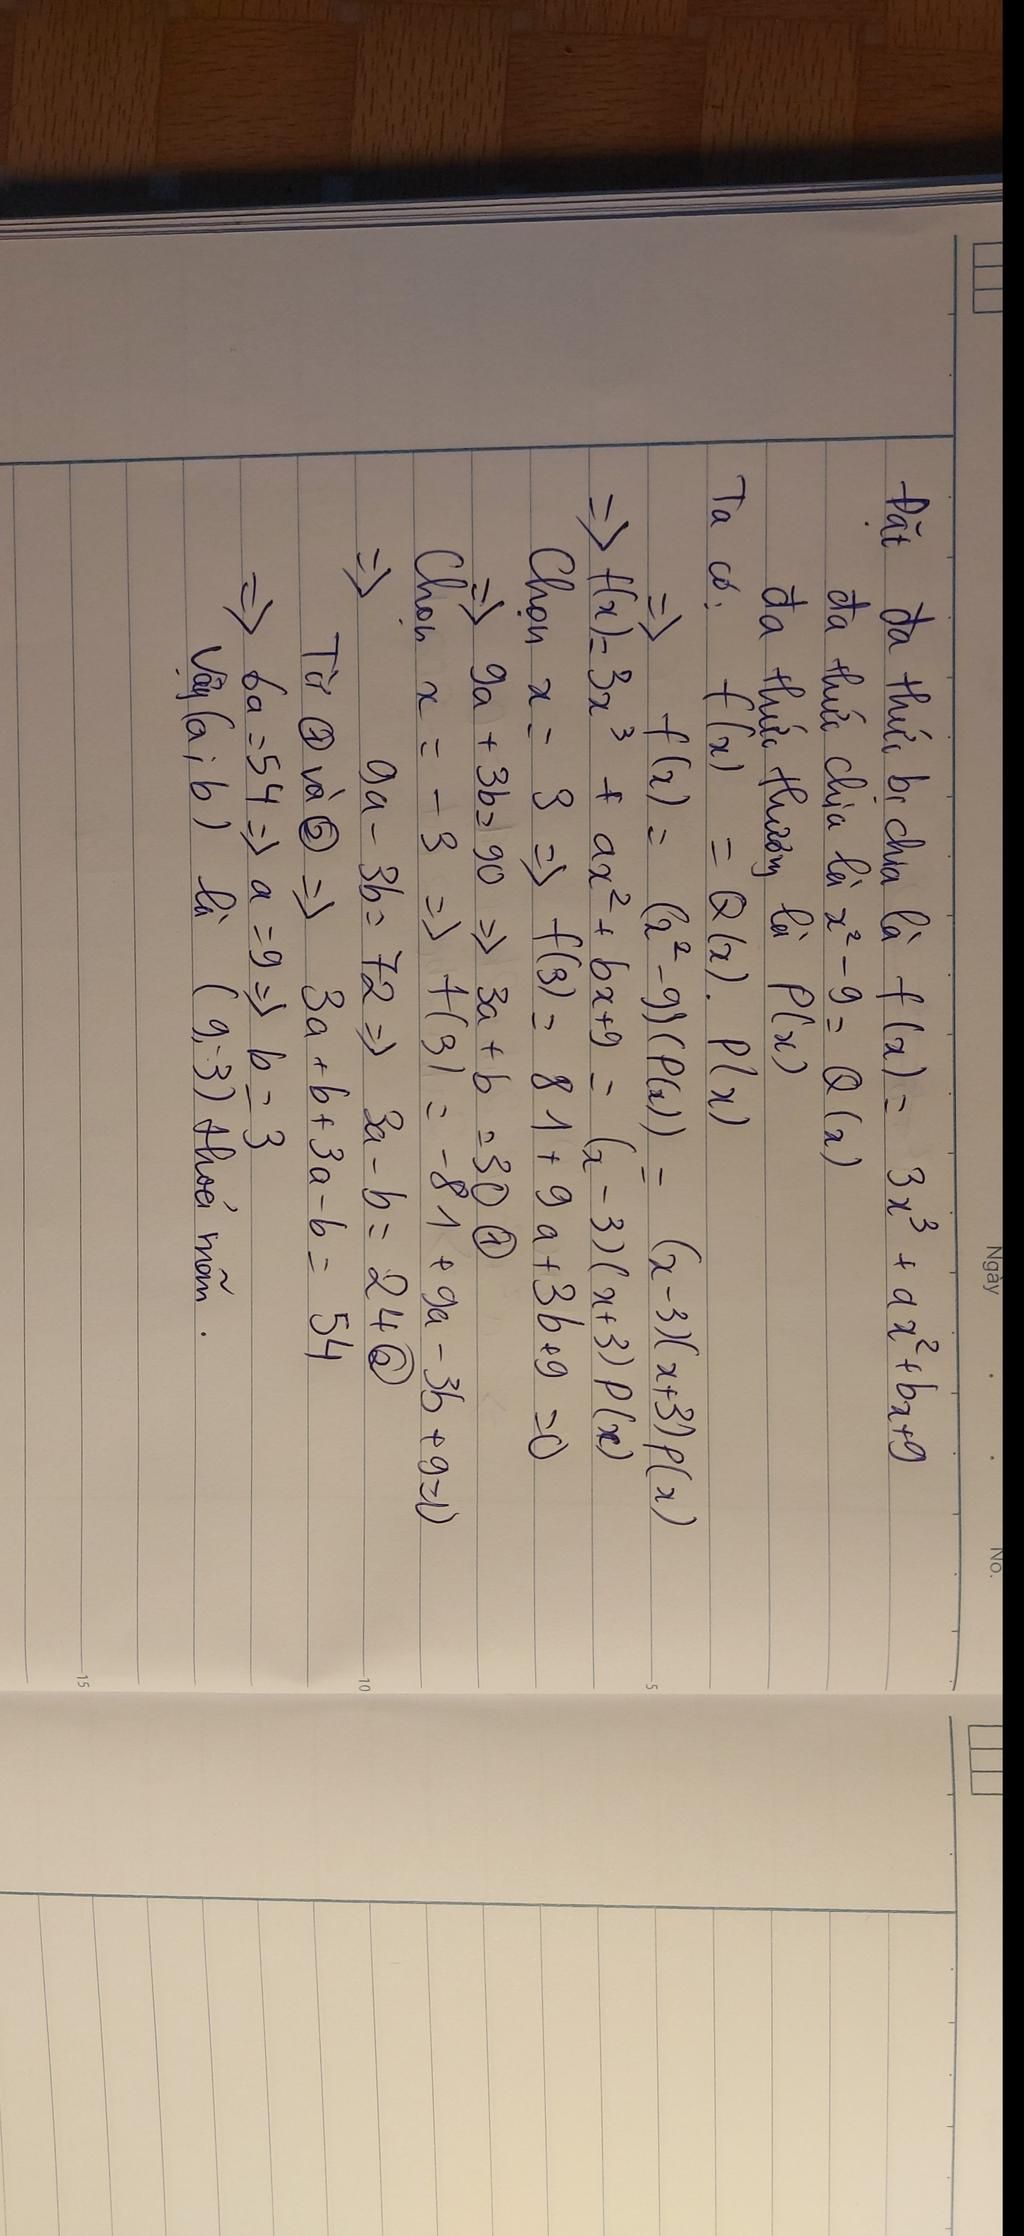 Ngày . . No.
Đặt đa thức bị chia là f(x) = 3x³ + ax² + bx + 9
đa thức chia là x² - 9 = Q(x)
đa thức thương là P(x)
Ta có: f(x) = Q(x). P(x)
=> f(x) = (x² - 9)(P(x)) = (x - 3)(x + 3)P(x)
=> f(x) = 3x³ + ax² + bx + 9 = (x - 3)(x + 3) P(x)
Chọn x = 3 => f(3) = 81 + 9a + 3b + 9 = 0
=> 9a + 3b = 90 => 3a + b = 30 ①
Chọn x = - 3 => f(3) = -81 + 9a - 3b + 9 = 0
=> 9a - 3b = 72 => 3a - b = 24 ②
Từ ① và ② => 3a + b + 3a - b = 54
=> 6a = 54 => a = 9 => b = 3
Vậy (a; b) là (9; 3) thoả mãn.
5
10
15